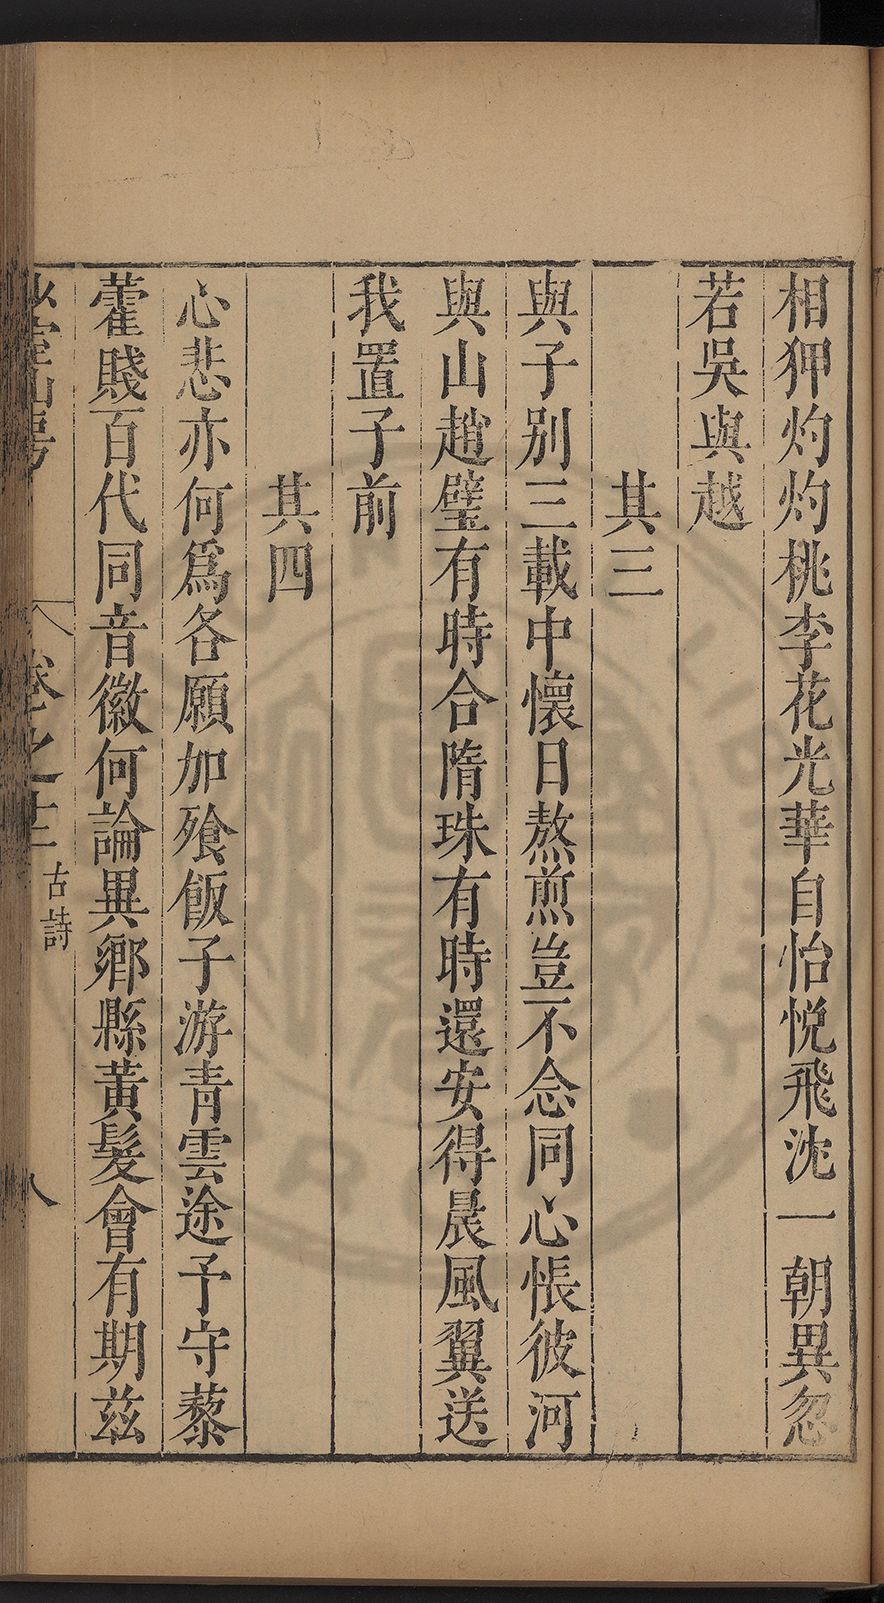 相狎灼灼桃李花光華自怡悅飛沈一朝異忽
若吳與越
其三
與子别三載中懷日熬煎豈不念同心悵彼河
與山趙璧有時合隋珠有時還安得晨風翼送
我置子前
其四
心悲亦何爲各願加飱飯子游青雲途予守藜
藿賤百代同音徽何論異鄉縣黃髮會有期茲
卷之十二 古詩 八